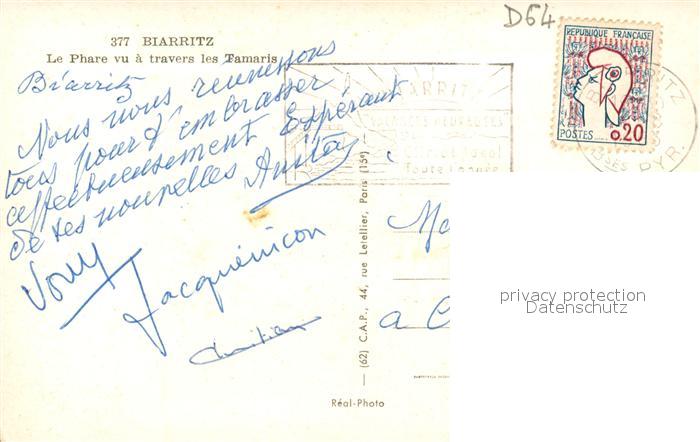 D64
377 BIARRITZ
Le Phare vu à travers les Tamaris
REPUBLIQUE FRANÇAISE
POSTES
0,20
BIARRITZ
BSES PYR.
Toute l'année
Biarritz
Nous nous reunissons
tous pour t'embrasser
affectueusement Espérant
de tes nouvelles Anita
Jacqueminon
Christian
(62) C.A.P., 44, rue Letellier, Paris (15e)
Réal-Photo
a C
privacy protection
Datenschutz